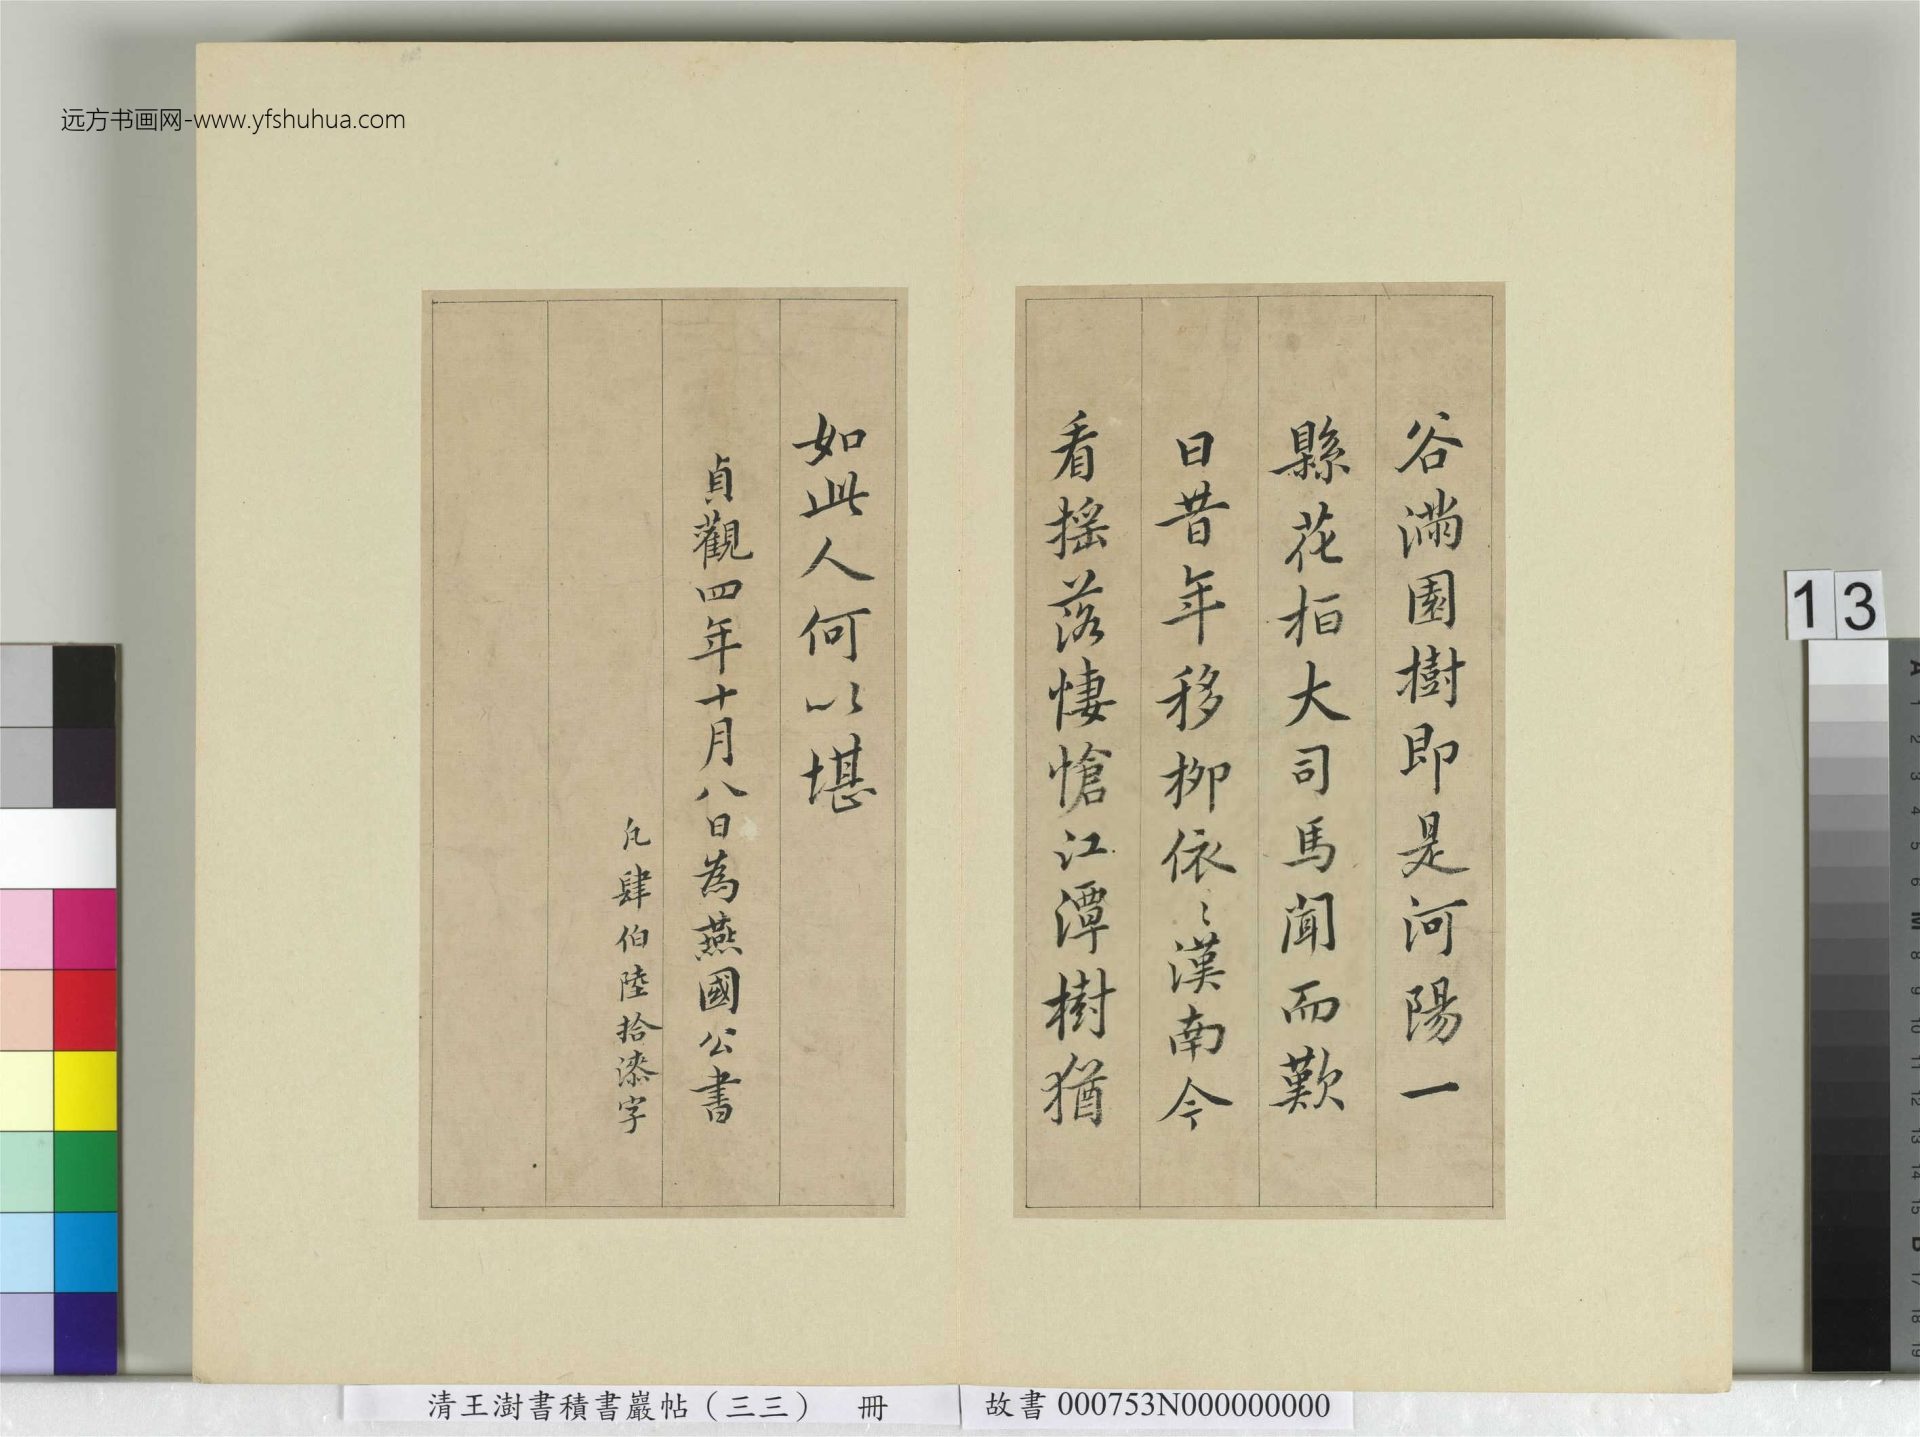 远方书画网-www.yfshuhua.com
谷滿園樹即是河陽一
縣花桓大司馬聞而歎
日昔年移柳依〻漢南今
看搖落悽愴江潭樹猶
如此人何以堪
貞觀四年十月八日為燕國公書
凡肆伯陸拾漆字
13
清王澍書積書巖帖（三三） 冊
故書 000753N000000000
A 1 2 3 4 5 6 M 8 9 10 11 12 13 14 15 B 17 18 19